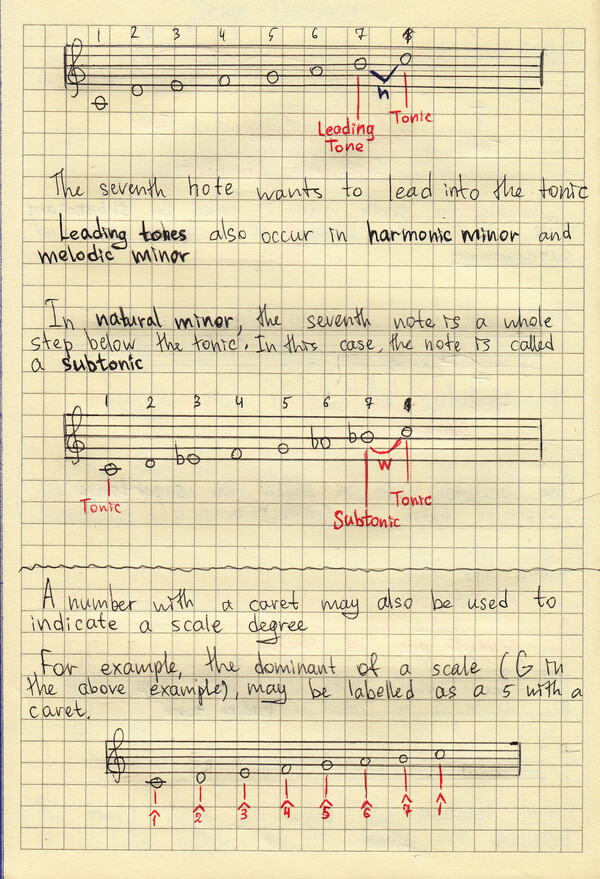 1 2 3 4 5 6 7 8
h
Leading Tonic
Tone
The seventh note wants to lead into the tonic
Leading tones also occur in harmonic minor and
melodic minor
In natural minor, the seventh note is a whole
step below the tonic. In this case, the note is called
a subtonic
1 2 3 4 5 6 7
♭ ♭ ♭
W
Tonic Subtonic Tonic
A number with a caret may also be used to
indicate a scale degree
For example, the dominant of a scale (G in
the above example), may be labelled as a 5 with a
caret.
1 2 3 4 5 6 7 1